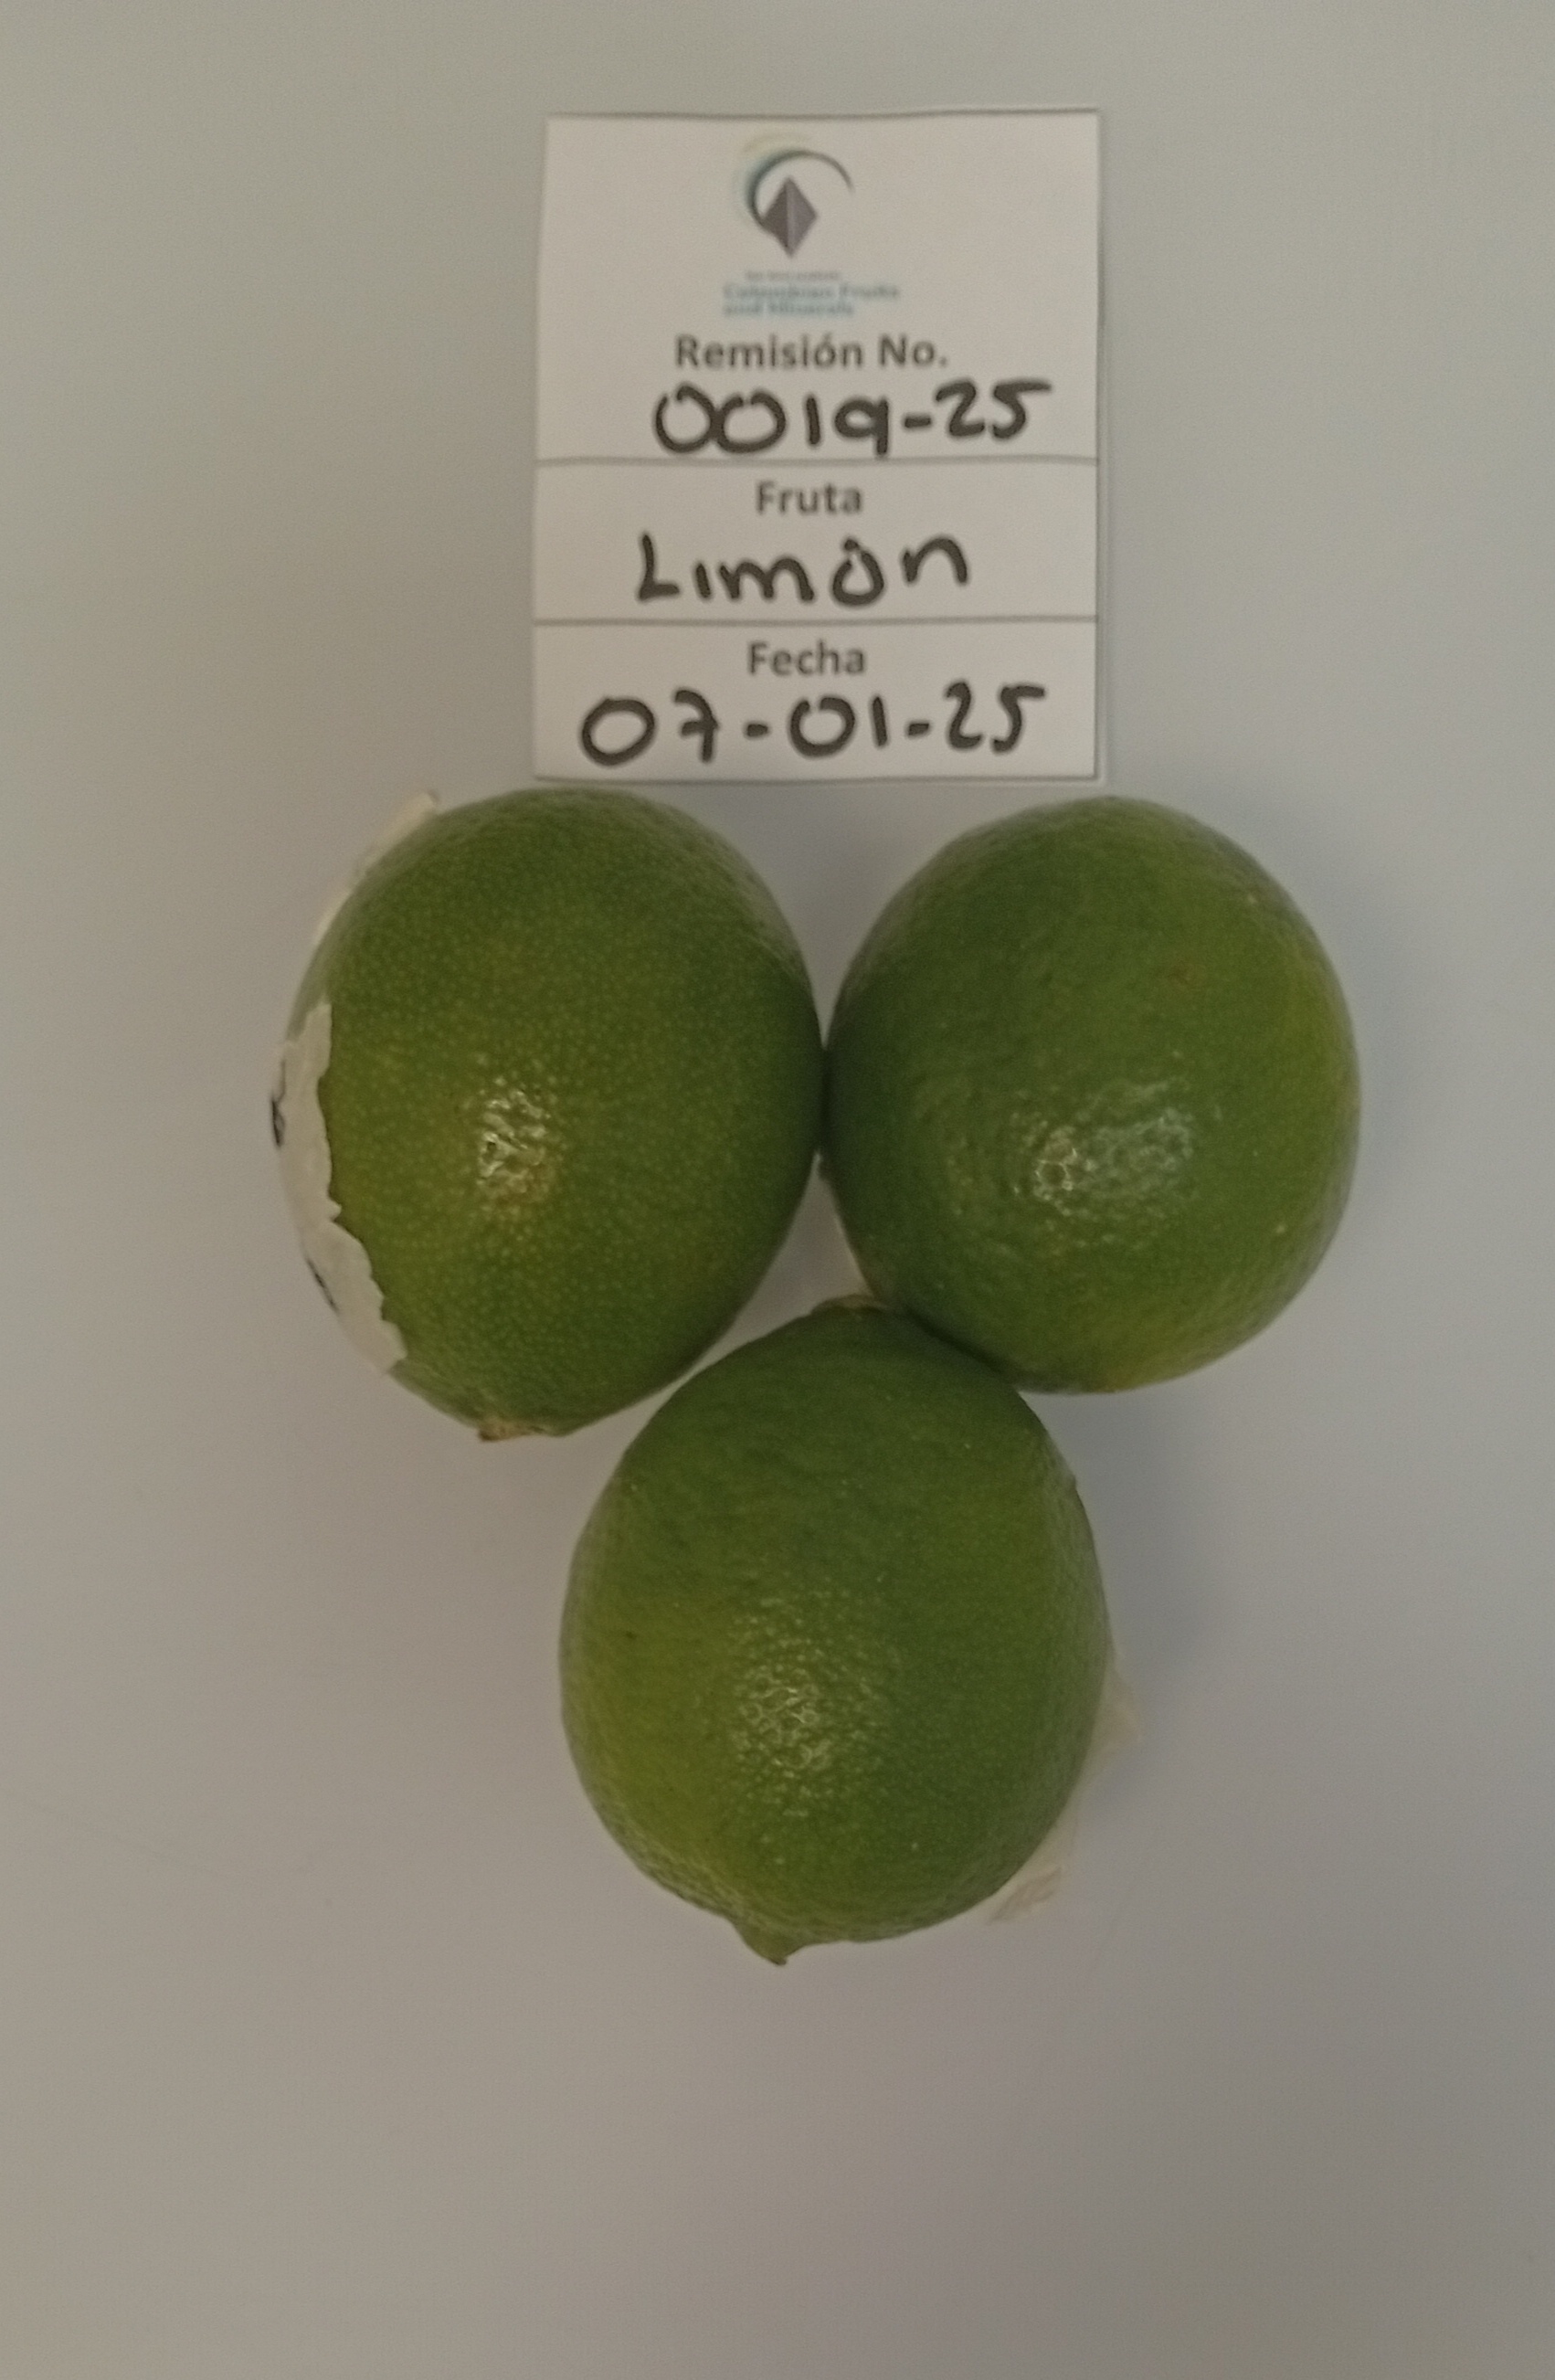 Colombian Fruits
and Minerals
Remisión No.
0019-25
Fruta
Limón
Fecha
07-01-25